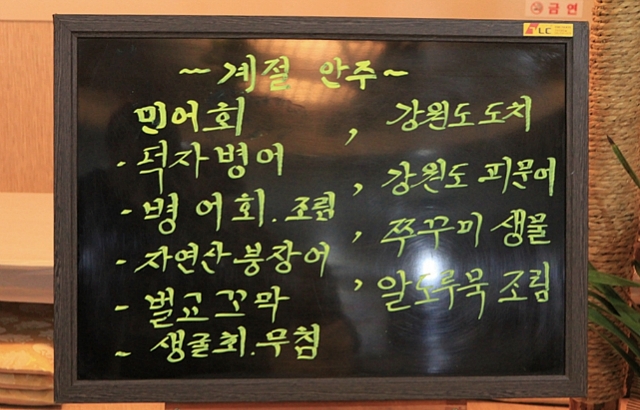 금연
LC
~계절 안주~
민어회
- 덕자병어
- 병어회. 조림
- 자연산붕장어
- 벌교꼬막
- 생굴회.무침
, 강원도도치
, 강원도 피문어
, 쭈꾸미 생물
, 알도루묵 조림